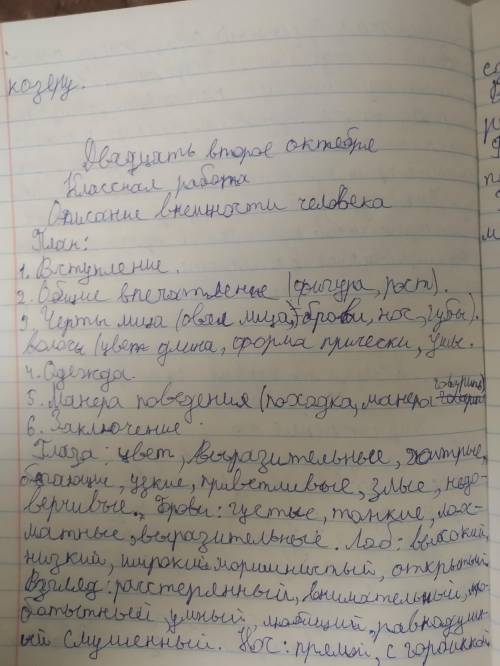 козеру.
Двадцать второе октября
Классная работа
Описание внешности человека
План:
1. Вступление.
2. Общие впечатление (фигура, рост).
3 Черты лица (овал лица, брови, нос, губы).
волосы (цвет длина, форма прически,
4. Одежда.
5. Манера поведения (походка, манера говорить)
6. Заключение.
Глаза: цвет, выразительные, хитрые,
бегающие, узкие, приветливые, злые, недо-
верчивые. Брови: густые, тонкие, лох-
матные, выразительные. Лоб: высокий,
низкий, широкий морщинистый, открытый
Взгляд: расстерянный, внимательный, лю-
бопытный, умный, любящий, равнодуш-
ый смущенный. Нос: прямой, с горбинкой